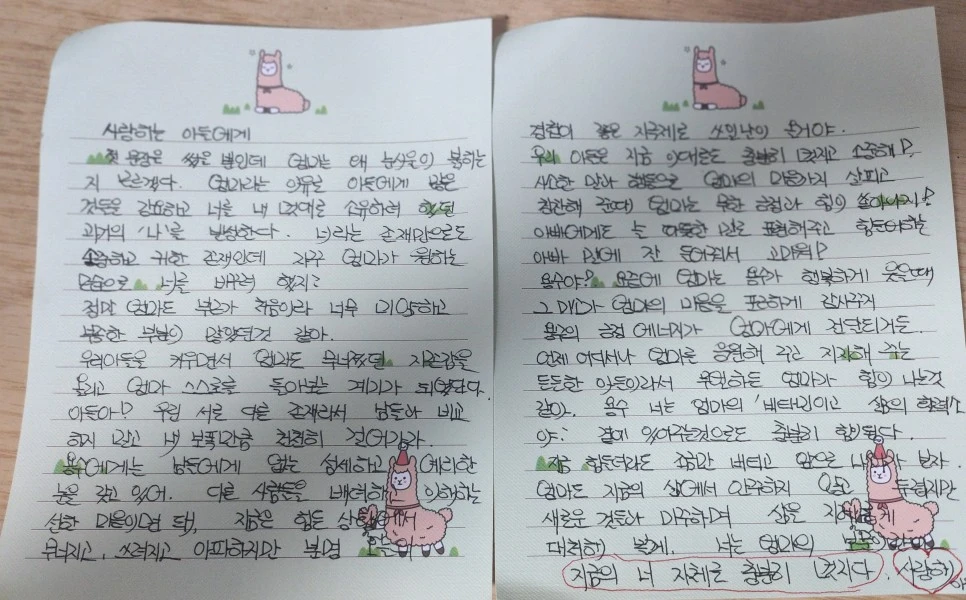 사랑하는 아들에게
첫 문장은 썼을 뿐인데 엄마는 왜 눈시울이 붉히는
지 모르겠다. 엄마라는 이유로 아들에게 많은
것들을 강요하고 너를 내 멋대로 소유하려 했던
과거의 '나'를 반성한다. 너라는 존재만으로도
소중하고 귀한 존재인데 자꾸 엄마가 원하는
모습으로 너를 바꾸려 했지?
정말 엄마도 부모가 처음이라 너무 미약하고
부족한 부분이 많았던것 같아.
우리아들을 키우면서 엄마도 무너졌던 자존감을
올리고 엄마 스스로를 돌아보는 계기가 되었단다.
아들아! 우린 서로 다른 존재라서 남들과 비교
하지 말고 네 보폭만큼 천천히 걸어가자.
용수에게는 남들에게 없는 섬세하고 예리한
눈을 갖고 있어. 다른 사람들을 배려하고 이해하는
선한 마음이면 돼, 지금은 힘든
무너지고, 쓰러지고 아파하지만 분명
점철이 좋은 지금제로 쓰일날이 올거야.
우리 아들은 지금 이대로도 충분히 멋지고 소중해!
사소한 말과 행동으로 엄마의 마음까지 살피고
칭찬해 줄때 엄마는 무한 긍정과 힘이 솟아나지!
아빠에게도 늘 따뜻한 말로 표현해주고 힘들어하는
아빠 말에 잘 들어줘서 고마워!
용수야? 요즘에 엄마는 용수가 행복하게 웃을때
그 미소가 엄마의 마음을 포근하게 감싸주지
용수의 긍정 에너지가 엄마에게 전달되거든.
언제 어디서나 엄마를 응원해 주고 지지해 주는
든든한 아들이라서 무엇하든 엄마가 힘이 나는것
같아. 용수 너는 엄마의 '배터리'이고 삶의 활력소
야? 곁에 있어주는것으로도 충분히 힘이된다.
지금 힘들더라도 조금만 버티고 앞으로 나가 보자.
엄마도 지금의 삶에서 안주하지 않고 두렵지만
새로운 것들과 마주하며 삶을 지혜롭게
대처해 볼게. 너는 엄마의
지금의 너 자체로 충분히 멋지다. 사랑해